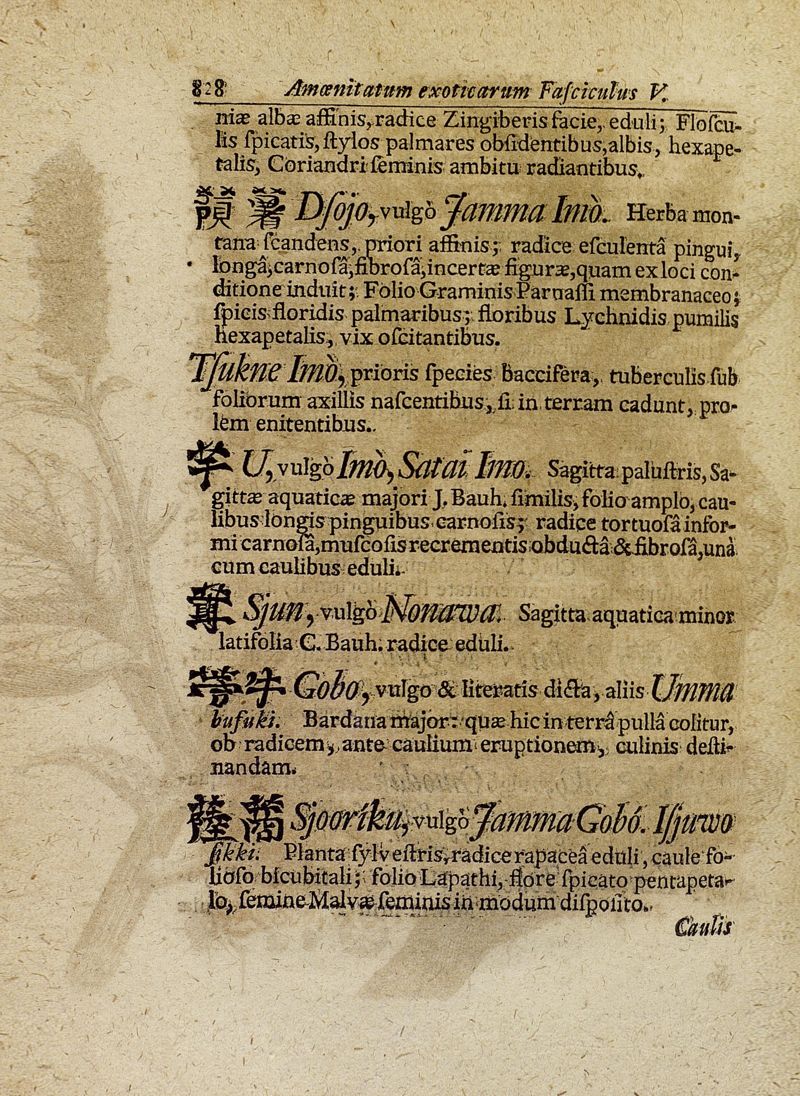 828 Amœnitatum exoticarum Fasciculus V.
niæ albæ affinis, radice Zingiberis facie, eduli; Floſcu-
lis ſpicatis, ſtylos palmares obſidentibus, albis, hexape-
talis, Coriandri ſeminis ambitu radiantibus.
Dſojo, vulgò Jamma Imo. Herba mon-
tana ſcandens, priori affinis; radice eſculentâ pingui,
longâ, carnoſâ, fibroſâ, incertæ figuræ, quam ex loci con-
ditione induit; Folio Graminis Parnaſſi membranaceo;
ſpicis floridis palmaribus; floribus Lychnidis pumilis
hexapetalis, vix oſcitantibus.
Tſukne Imo, prioris ſpecies baccifera, tuberculis ſub
foliorum axillis naſcentibus, ſi in terram cadunt, pro-
lem enitentibus.
芋 U, vulgò Imo, Satai Imo. Sagitta paluſtris, Sa-
gittæ aquaticæ majori J. Bauh. ſimilis, folio amplo, cau-
libus longis pinguibus carnoſis; radice tortuoſâ infor-
mi carnoſâ, muſcoſis recrementis obductâ & fibroſâ, unà
cum caulibus eduli.
Sjun, vulgò Nonawa. Sagitta aquatica minor
latifolia C. Bauh. radice eduli.
Gobo, vulgo & literatis dicta, aliis Umma
bufuki. Bardana major: quæ hic in terrâ pullâ colitur,
ob radicem, ante caulium eruptionem, culinis deſti-
nandam.
Sjooriku, vulgò Jamma Gobó. Iſjuwo
ſikki. Planta ſylveſtris, radice rapaceâ eduli, caule fo-
lioſo bicubitali; folio Lapathi, flore ſpicato pentapeta-
lo, ſemine Malvæ ſeminis in modum diſpoſito.
Caulis